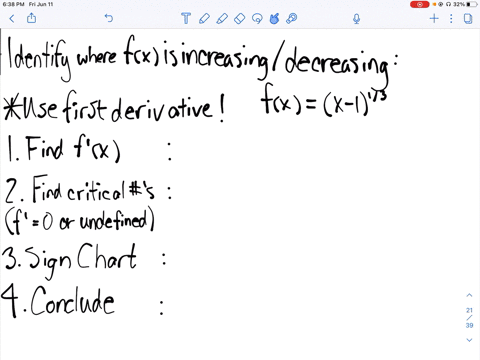 6:38 PM Fri Jun 11
32%
Identify where f(x) is increasing/decreasing:
*Use first derivative! f(x) = (x-1)^1/3
1. Find f'(x) :
2. Find critical #'s :
(f' = 0 or undefined)
3. Sign Chart :
4. Conclude :
21
39